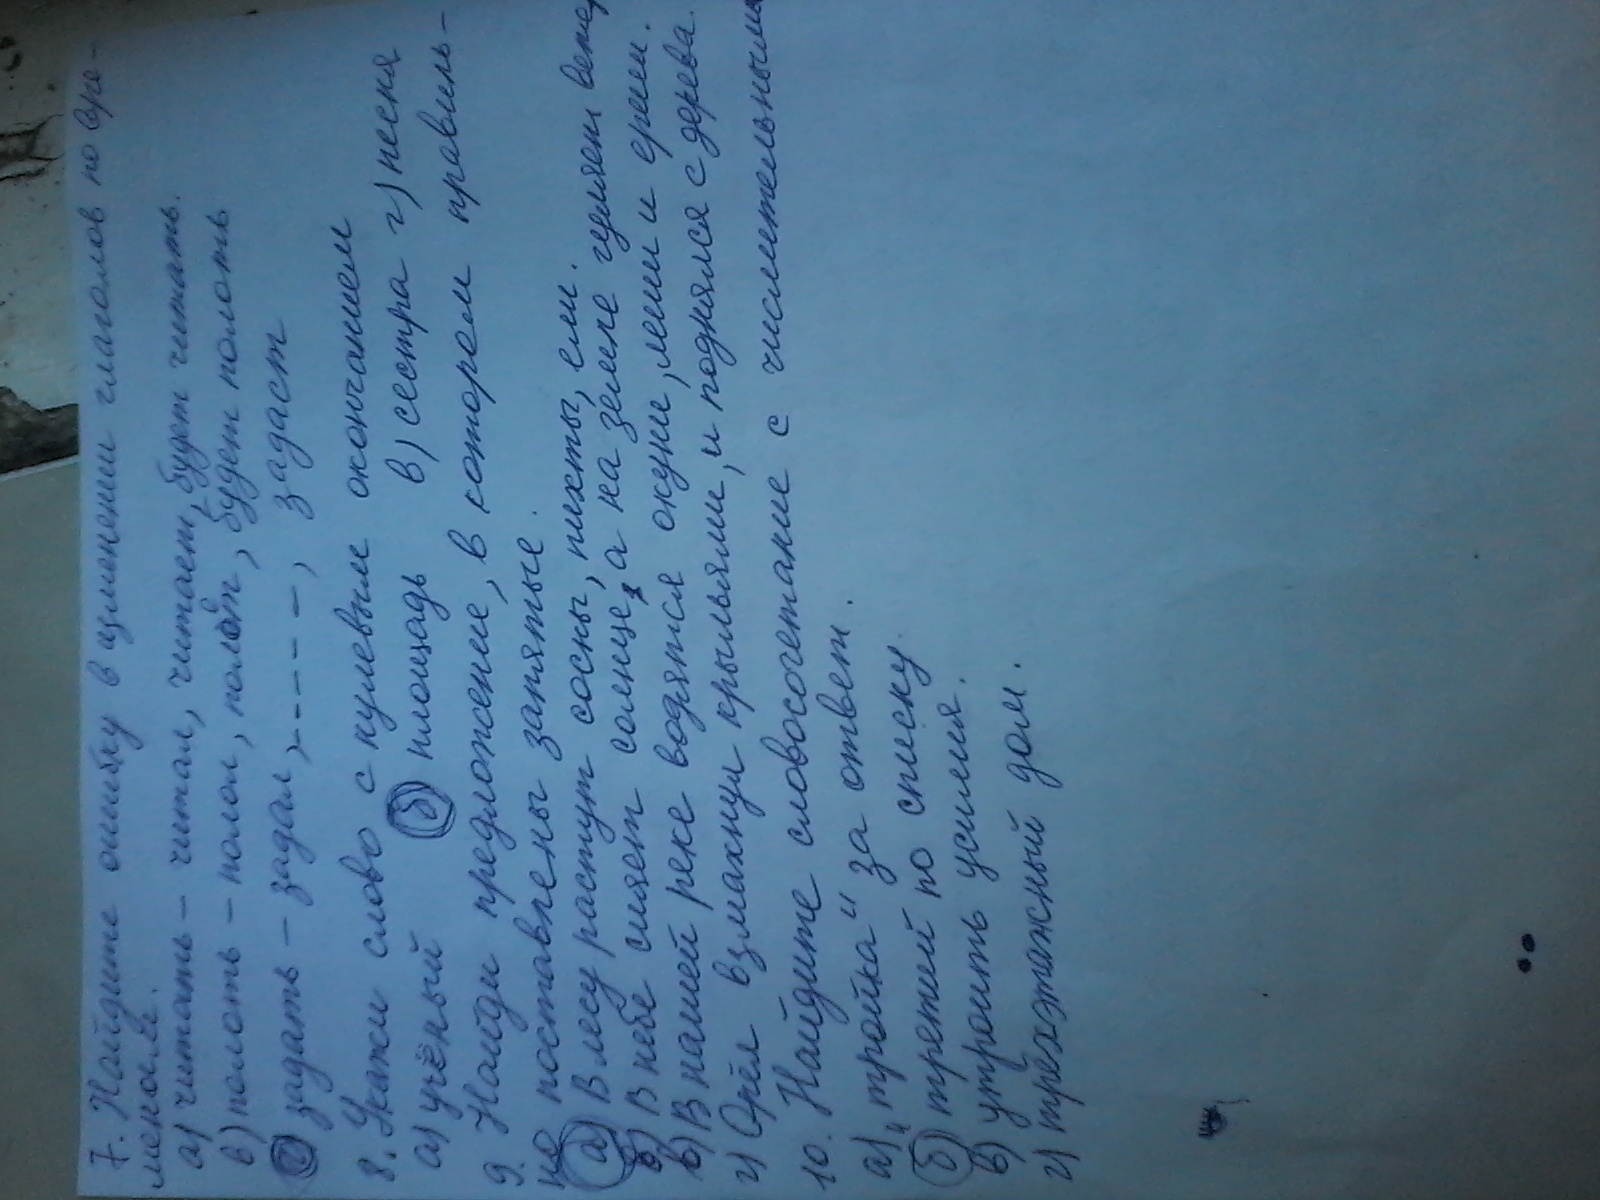 7. Найдите ошибку в изменении глаголов по вре-
менам.
а) читать – читал, читает, будет читать.
в) полоть – полол, полет, будет полоть
задать – задал, -----, задаст
8. Укажи слово с нулевым окончанием
а) учёный б) площадь в) сестра г) песня
9. Найди предложение, в котором правиль-
но поставлены запятые.
а) В лесу растут сосны, пихты, ели.
б) В небе сияет солнце, а на земле гуляет ветер
в) В нашей реке водятся окуни, лещи и ерши.
г) Орёл взмахнул крыльями, и поднялся с дерева.
10. Найдите словосочетание с числительными
а) "тройка" за ответ.
б) третий по списку.
в) утроить усилия.
г) трёхэтажный дом.